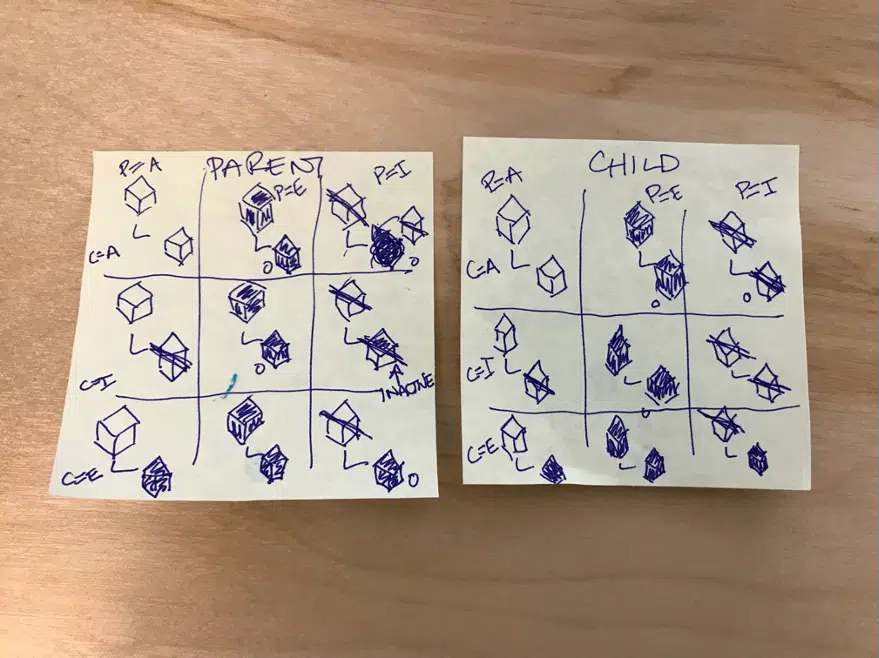 PARENT
P=A
P=E
P=I
C=A
O
O
C=I
O
INACTIVE
C=E
O
CHILD
P=A
P=E
P=I
C=A
O
O
C=I
O
C=E